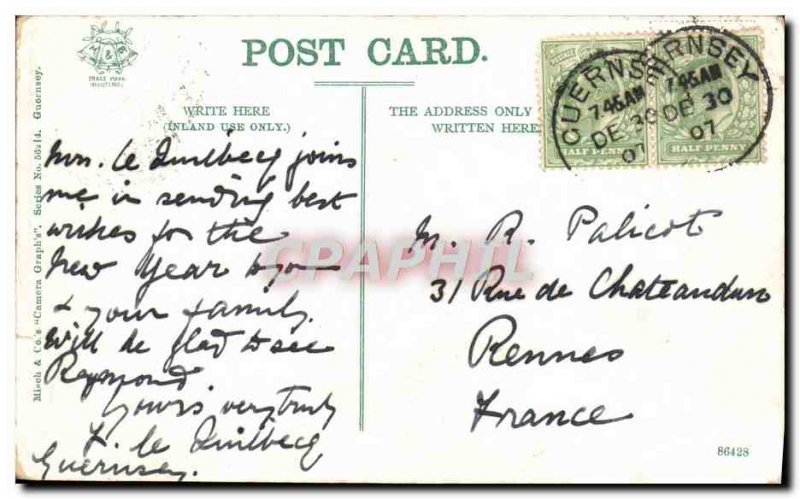 M & B
TRADE MARK
POST CARD.
WRITE HERE
(INLAND USE ONLY.)
THE ADDRESS ONLY
WRITTEN HERE
GUERNSEY
7.45AM
DE 30
07
HALF PENNY
GUERNSEY
7.45AM
DE 30
07
HALF PENNY
Mrs. le Quilbecq joins
me in sending best
wishes for the
New Year to you
& your family.
Will be glad to see
Raymond
Yours very truly
F. le Quilbecq
Guernsey.
M. R. Palicot
31 Rue de Chateaudun
Rennes
France
CPAPHIL
86428
Misch & Co.'s "Camera Graphs". Series No. 562/4. Guernsey.